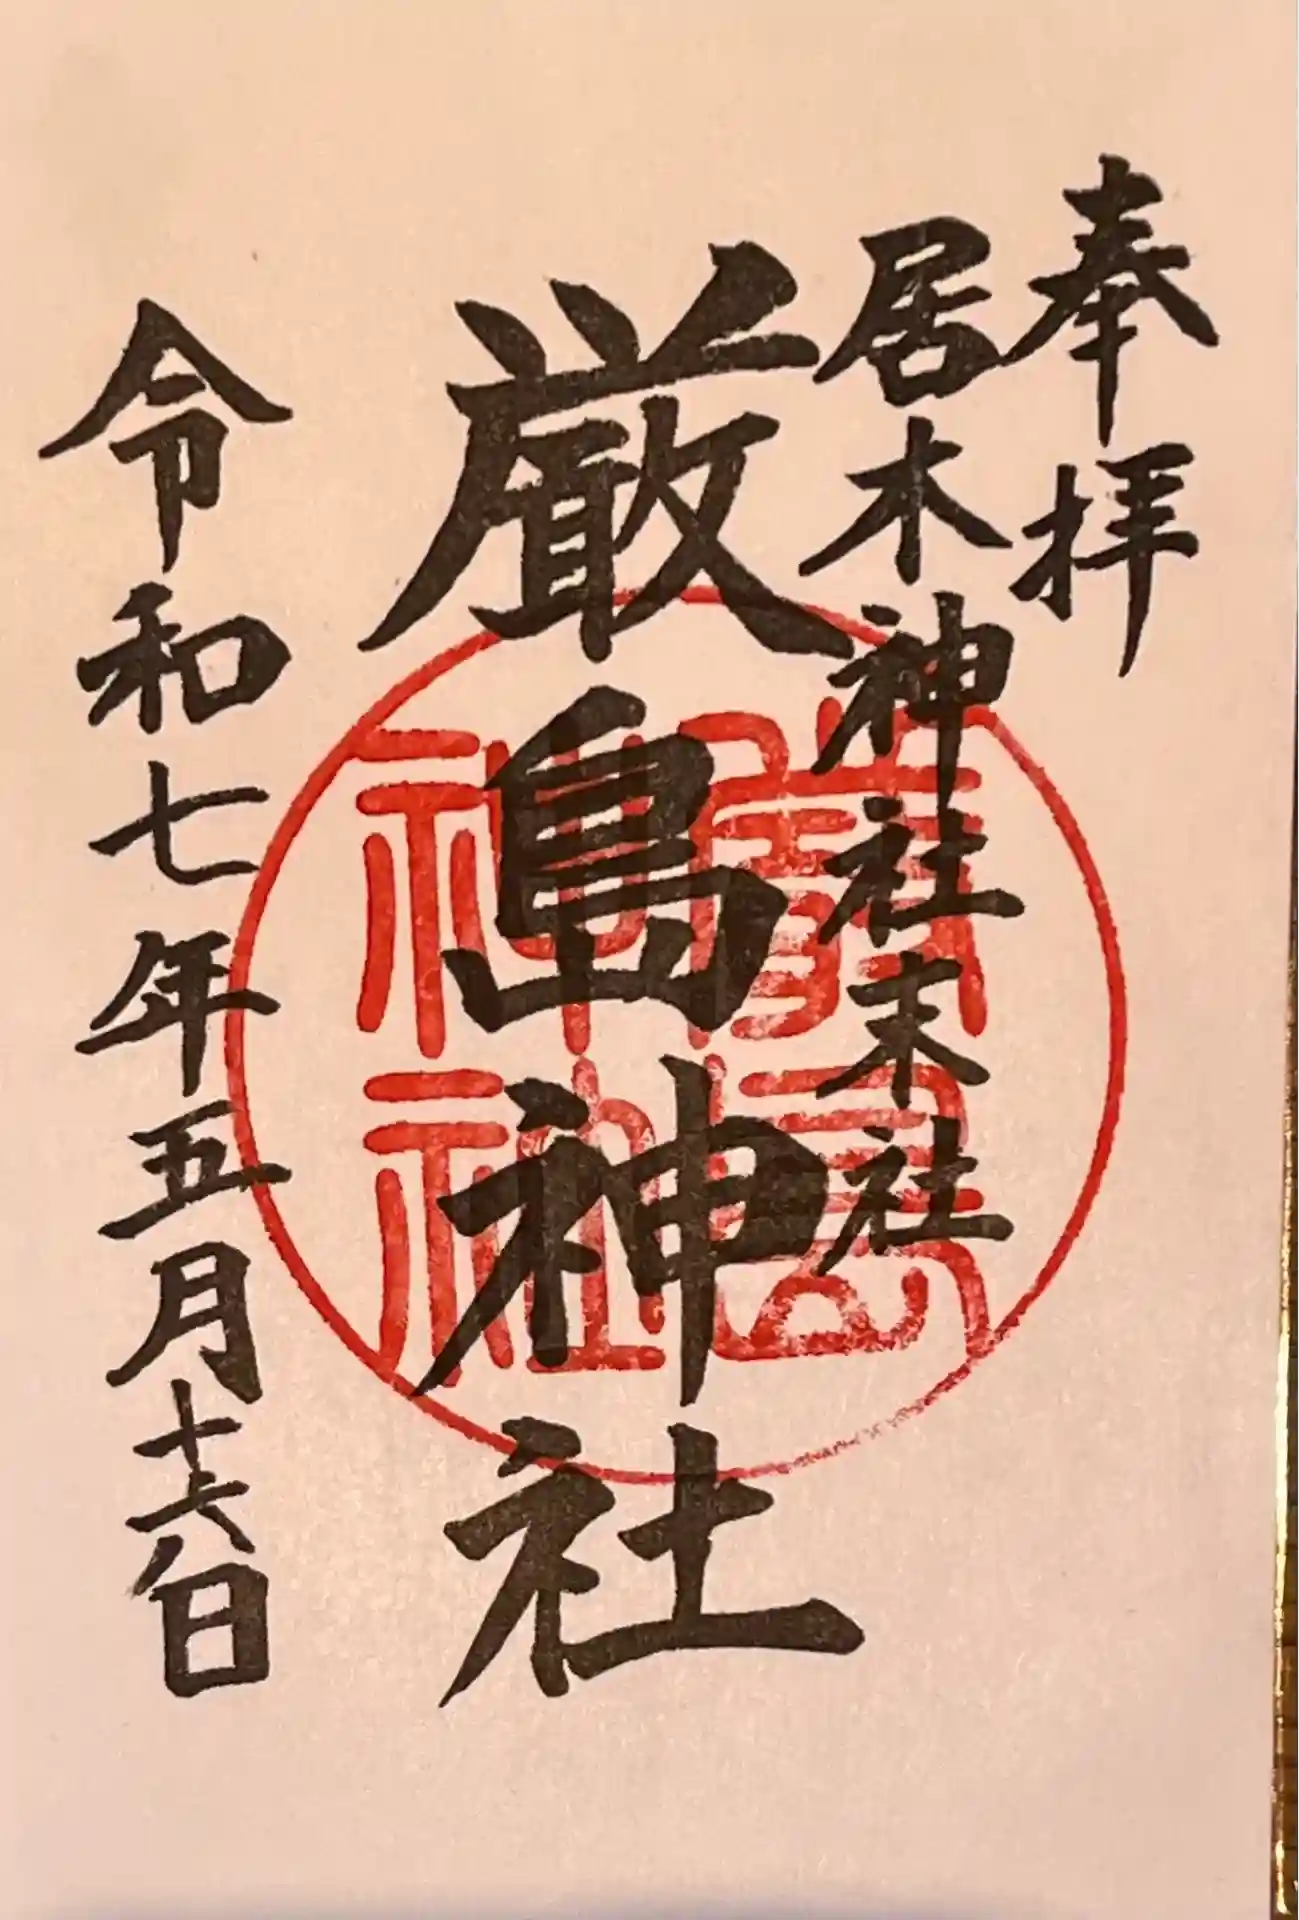 奉拝
居木神社末社
厳島神社
令和七年五月十六日
嚴島神社